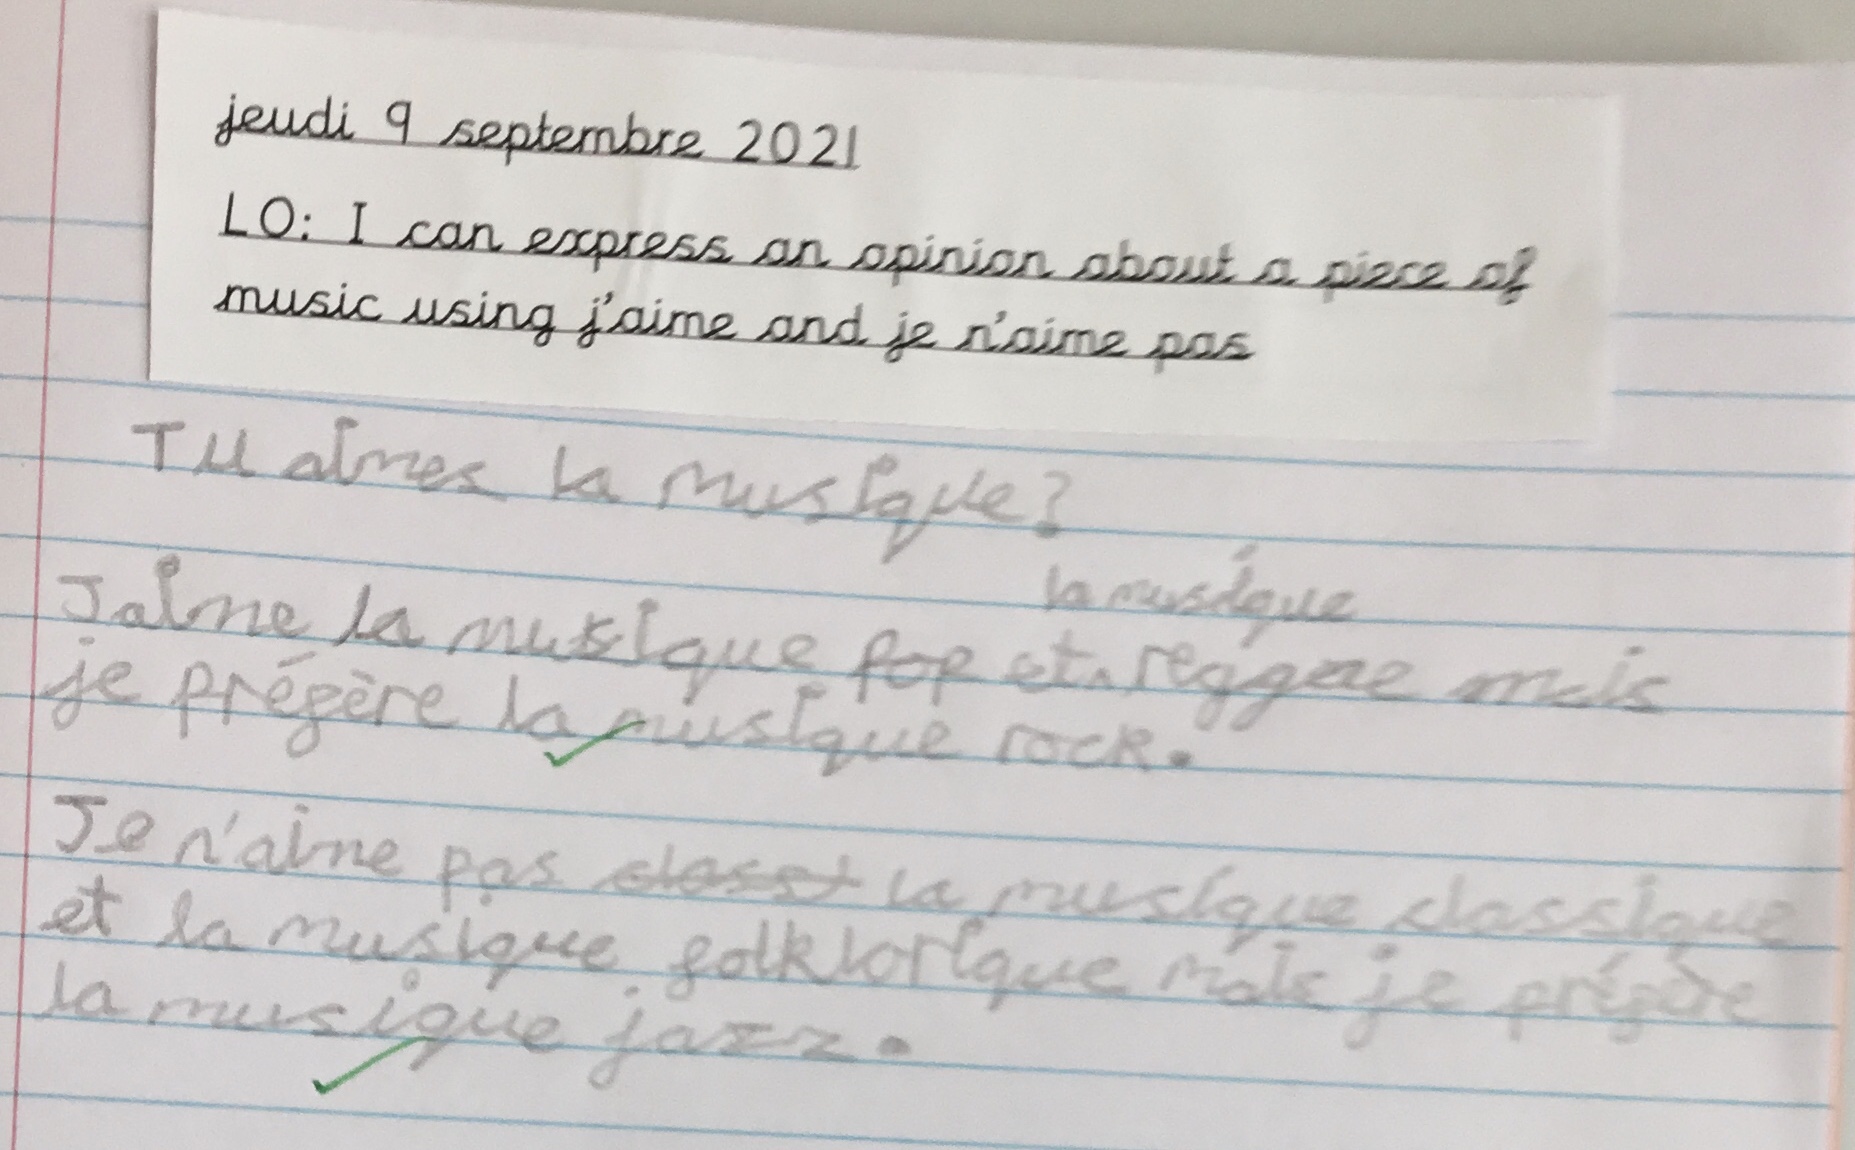 jeudi 9 septembre 2021
LO: I can express an opinion about a piece of
music using j'aime and je n'aime pas
Tu aimes la musique?
la musique
J'aime la musique pop et reggae mais
je préfère la musique rock.
Je n'aime pas la musique classique
et la musique folklorique mais je préfère
la musique jazz.